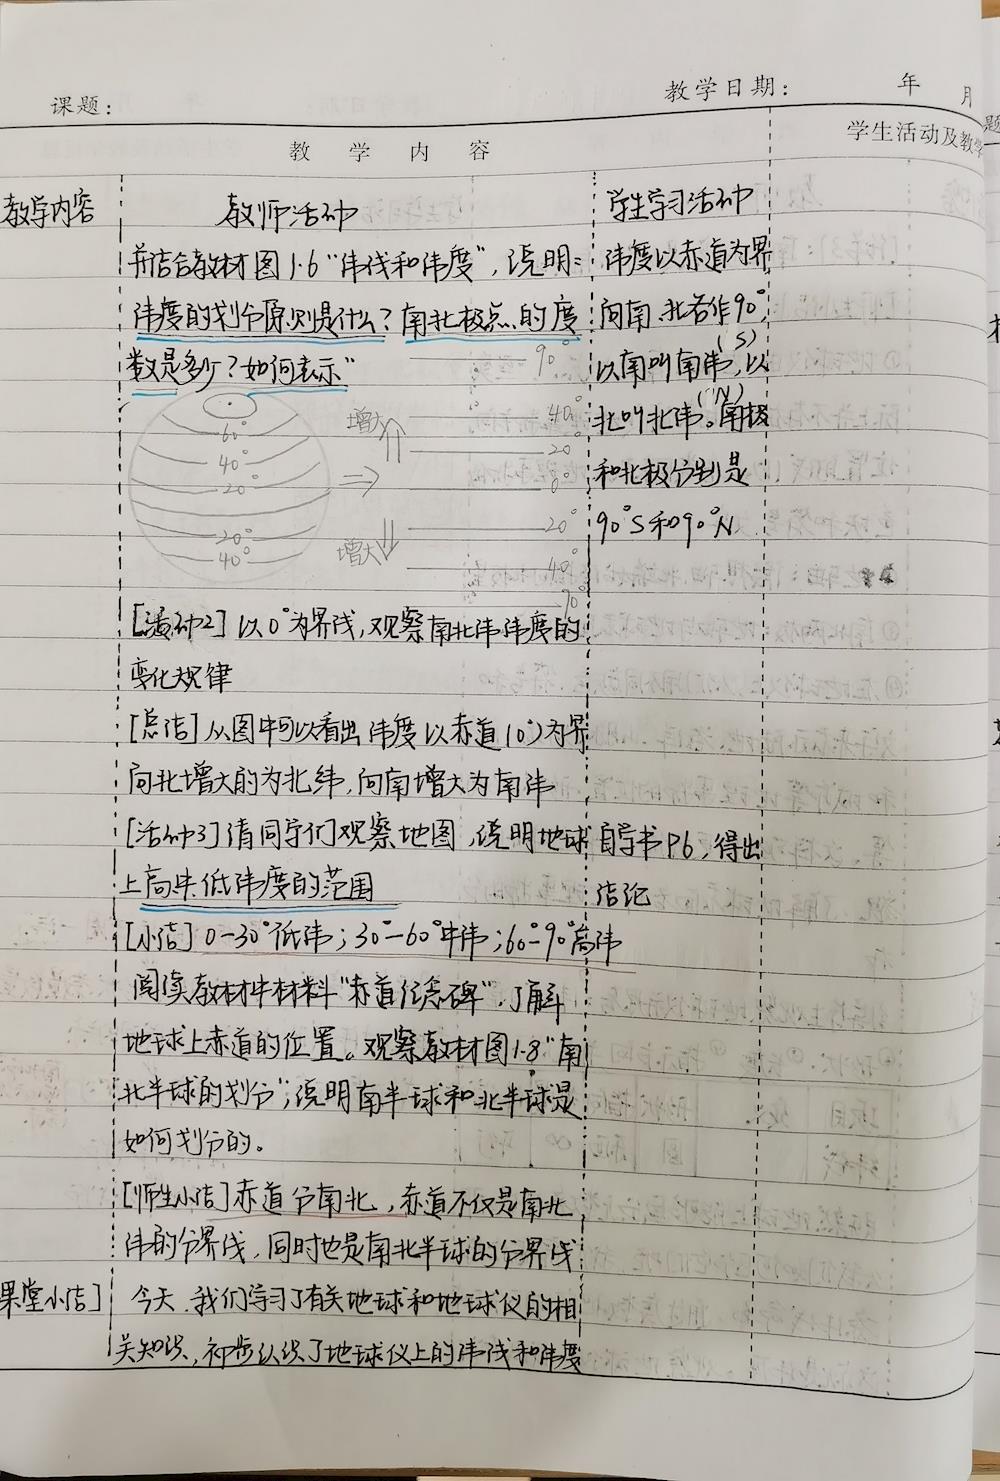 课题：
教学日期：
年
月
教学内容
学生活动及教学
题
教学内容
教师活动
学生学习活动
并结合教材图1.6“纬线和纬度”，说明：
纬度的划分原则是什么？南北极点的度
数是多少？如何表示”
纬度以赤道为界
向南、北各作90°，
(S)
以南叫南纬，以
(N)
北叫北纬。南极
和北极分别是
90°S和90°N
60°
40°
20°
20°
40°
增大
增大
90°
40°
20°
0°
20°
40°
90
[活动2] 以0°为界线，观察南北纬纬度的
变化规律
[总结] 从图中可以看出纬度以赤道(0°)为界
向北增大的为北纬，向南增大为南纬
[活动3] 请同学们观察地图，说明地球
上高中低纬度的范围
自学书P6，得出
结论
[小结] 0-30°低纬；30°-60°中纬；60°-90°高纬
阅读教材中材料“赤道纪念碑”，了解
地球上赤道的位置。观察教材图1.8“南
北半球的划分”；说明南半球和北半球是
如何划分的。
[师生小结] 赤道分南北，赤道不仅是南北
纬的分界线，同时也是南北半球的分界线
课堂小结]
今天，我们学习了有关地球和地球仪的相
关知识，初步认识了地球仪上的纬线和纬度